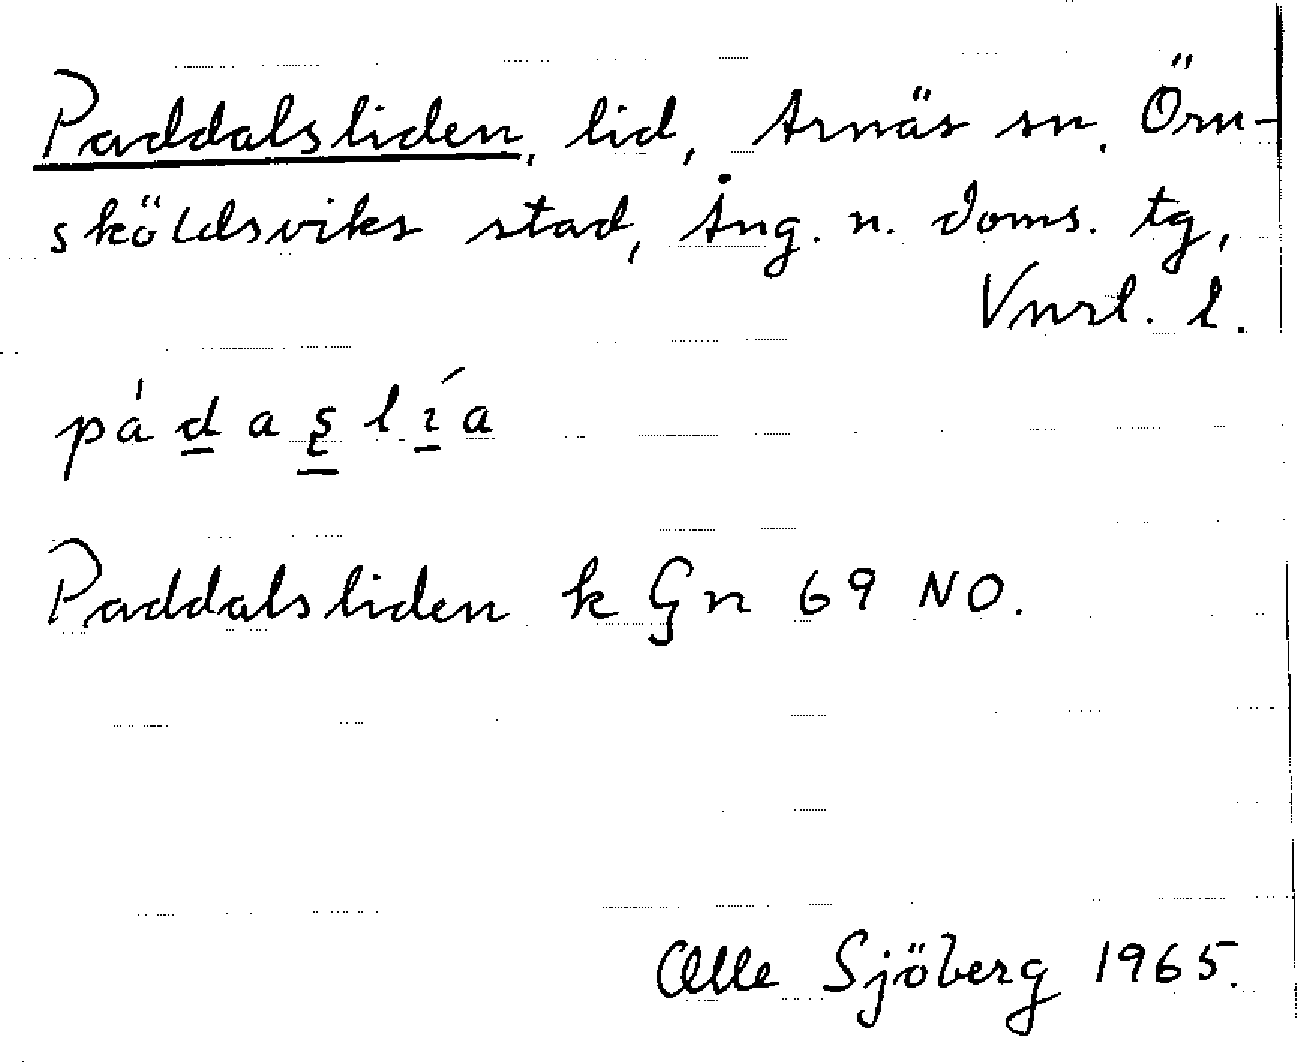 Paddalsliden, lid, Arnäs sn, Örn-
sköldsviks stad, Ång. n. doms. tg,
Vnrl. l.
pàdaṣlía
Paddalsliden k Gn 69 NO.
Olle Sjöberg 1965.